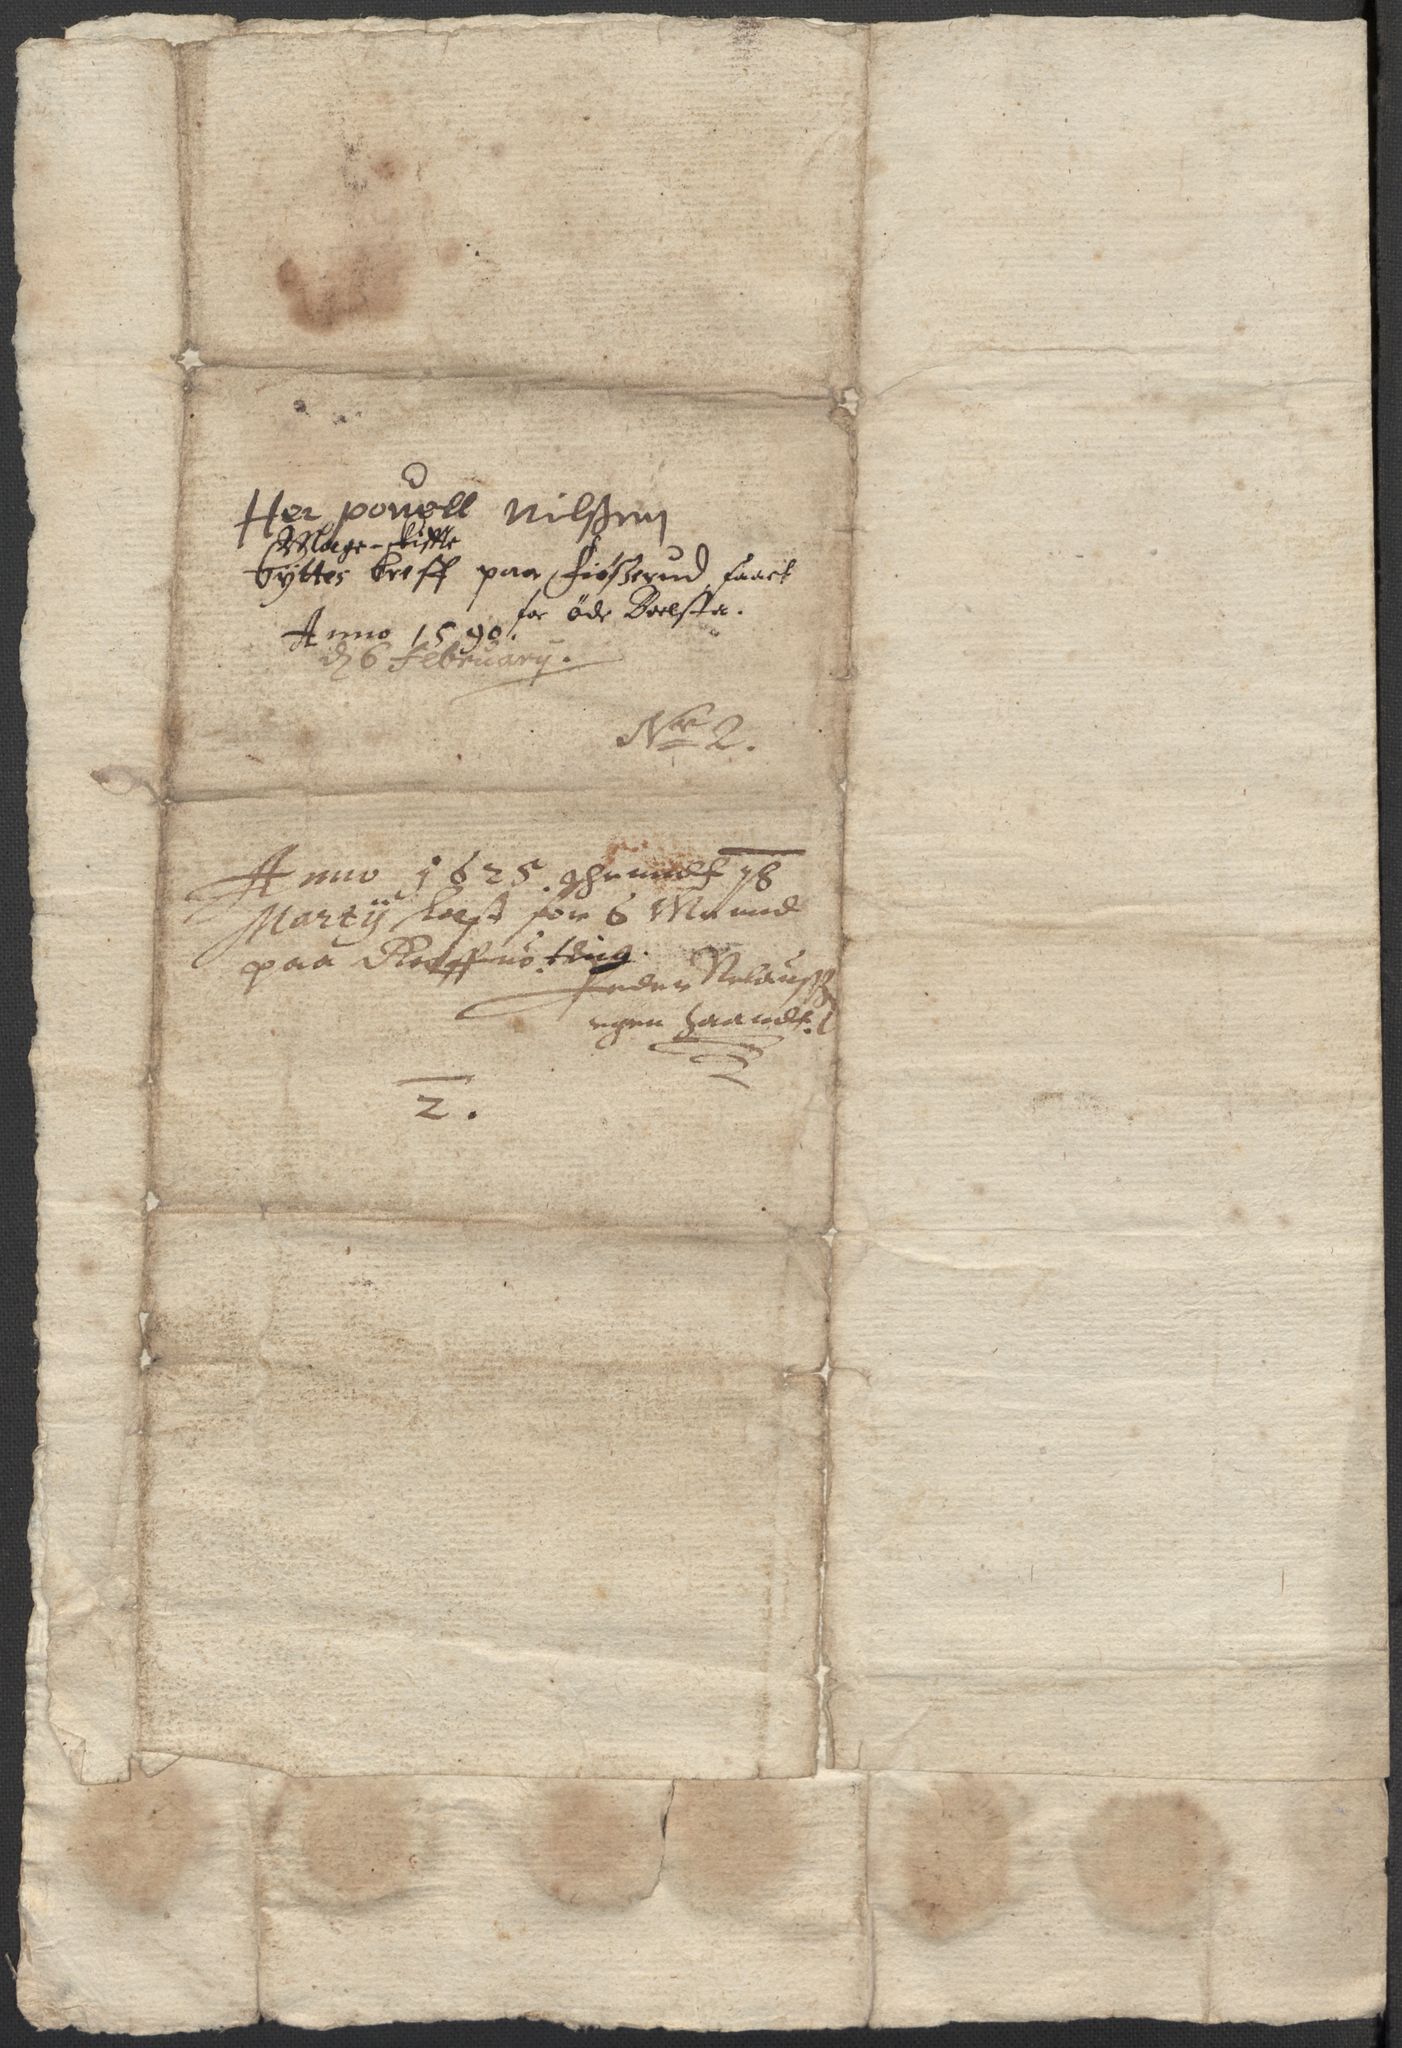 Her pouell Nilßøn
Mage-skiffte
byttes breff paa Fiøßerud, faaet
for øde Boelsta.
Anno 1590.
d 6 February.
No 2.
Anno 1625 18
Martij lest for 6 Mænd
paa ting.
Peder
egen Haandt.
2.